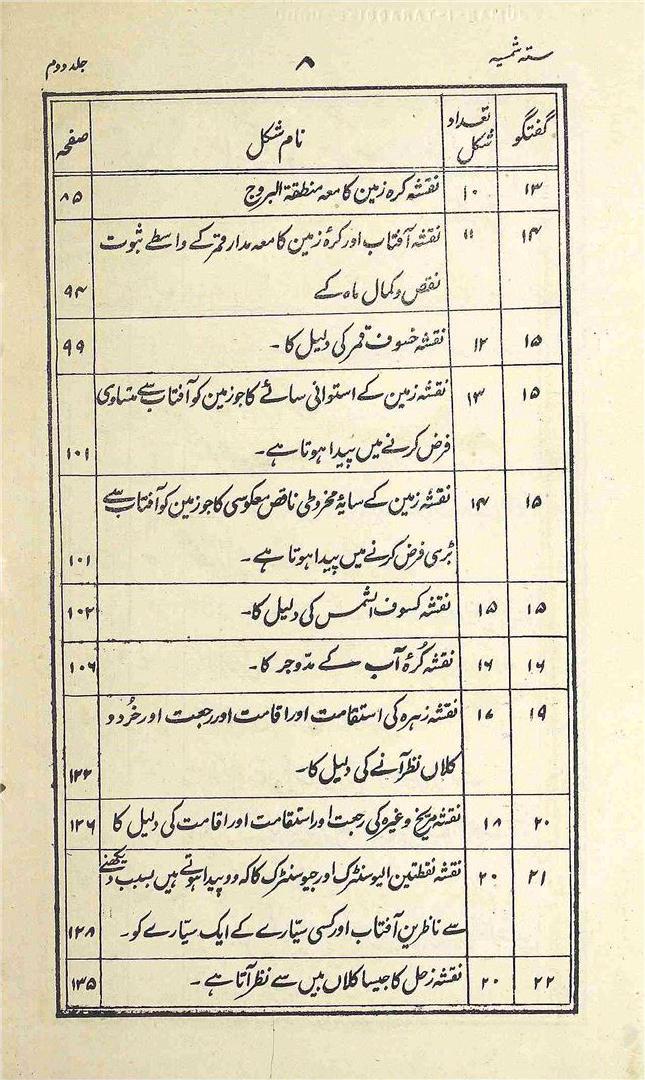 ستہ شمسیہ ۸ جلد دوم
گفتگو تعداد شکل نام شکل صفحہ
۱۳ ۱۰ نقشہ کرہ زمین کا معہ منطقۃ البروج ۸۵
۱۴ ۱۱ نقشہ آفتاب اور کرۂ زمین کا معہ مدار قمر کے واسطے ثبوت
نقص و کمال ماہ کے ۹۴
۱۵ ۱۲ نقشہ خسوف قمر کی دلیل کا۔ ۹۹
۱۵ ۱۳ نقشہ زمین کے استوانی سائے کا جو زمین کو آفتاب سے متساوی
فرض کرنے میں پیدا ہوتا ہے۔ ۱۰۱
۱۵ ۱۴ نقشہ زمین کے سایۂ مخروطی ناقص معکوسی کا جو زمین کو آفتاب سے
بڑی فرض کرنے میں پیدا ہوتا ہے۔ ۱۰۱
۱۵ ۱۵ نقشہ کسوف الشمس کی دلیل کا۔ ۱۰۲
۱۶ ۱۶ نقشہ کُرۂ آب کے مدوجر کا۔ ۱۰۶
۱۹ ۱۷ نقشہ زہرہ کی استقامت اور اقامت اور رجعت اور خُرد و
کلاں نظر آنے کی دلیل کا۔ ۱۲۲
۲۰ ۱۸ نقشہ مریخ وغیرہ کی رجعت اور استقامت اور اقامت کی دلیل کا ۱۲۶
۲۱ ۲۰ نقشہ نقطتین الیوسنٹرک اور جیوسنٹرک کا کہ وو پیدا ہوتے ہیں بسبب دیکھنے
سے ناظرین آفتاب اور کسی سیّارے کے ایک سیّارے کو۔ ۱۲۸
۲۲ ۲۰ نقشہ زحل کا جیسا کلاں بیں سے نظر آتا ہے۔ ۱۳۵